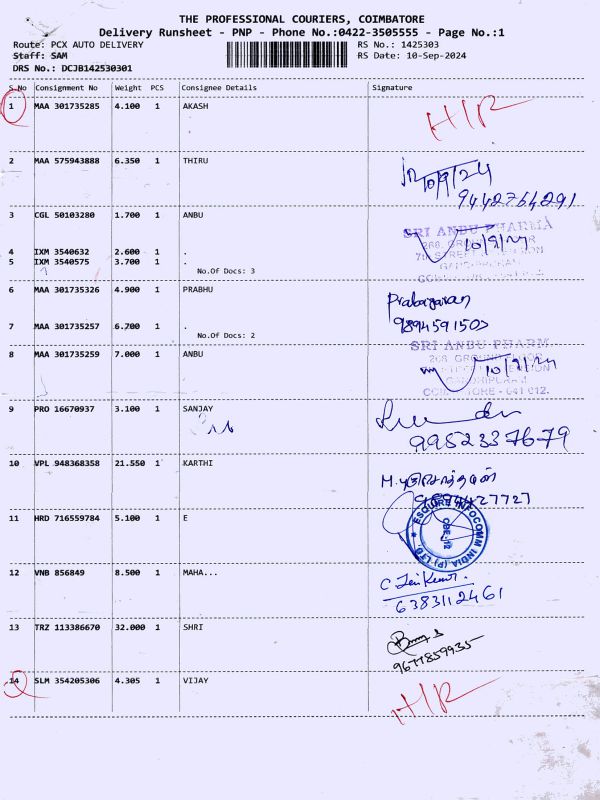 THE PROFESSIONAL COURIERS, COIMBATORE
Delivery Runsheet - PNP - Phone No.:0422-3505555 - Page No.:1
Route: PCX AUTO DELIVERY RS No.: 1425303
Staff: SAM RS Date: 10-Sep-2024
DRS No.: DCJB142530301
S.No Consignment No Weight PCS Consignee Details Signature
1 MAA 301735285 4.100 1 AKASH
H/R
2 MAA 575943888 6.350 1 THIRU
10/9/24
9442764291
3 CGL 50103280 1.700 1 ANBU
SRI ANBU PHARMA
10/9/24
4 IXM 3540632 2.600 1 .
5 IXM 3540575 3.700 1 .
No.Of Docs: 3
6 MAA 301735326 4.900 1 PRABHU
Prabagaran
9894591503
7 MAA 301735257 6.700 1 .
No.Of Docs: 2
8 MAA 301735259 7.000 1 ANBU
SRI ANBU PHARM
10/9/24
9 PRO 16670937 3.100 1 SANJAY
9952337679
10 VPL 948368358 21.550 1 KARTHI
11 HRD 716559784 5.100 1 E
ESQUIRE INFOCOMM INDIA (P) LTD.
CBE-12
12 VNB 856849 8.500 1 MAHA...
6383112461
13 TRZ 113386670 32.000 1 SHRI
9677859935
14 SLM 354205306 4.305 1 VIJAY
H/R